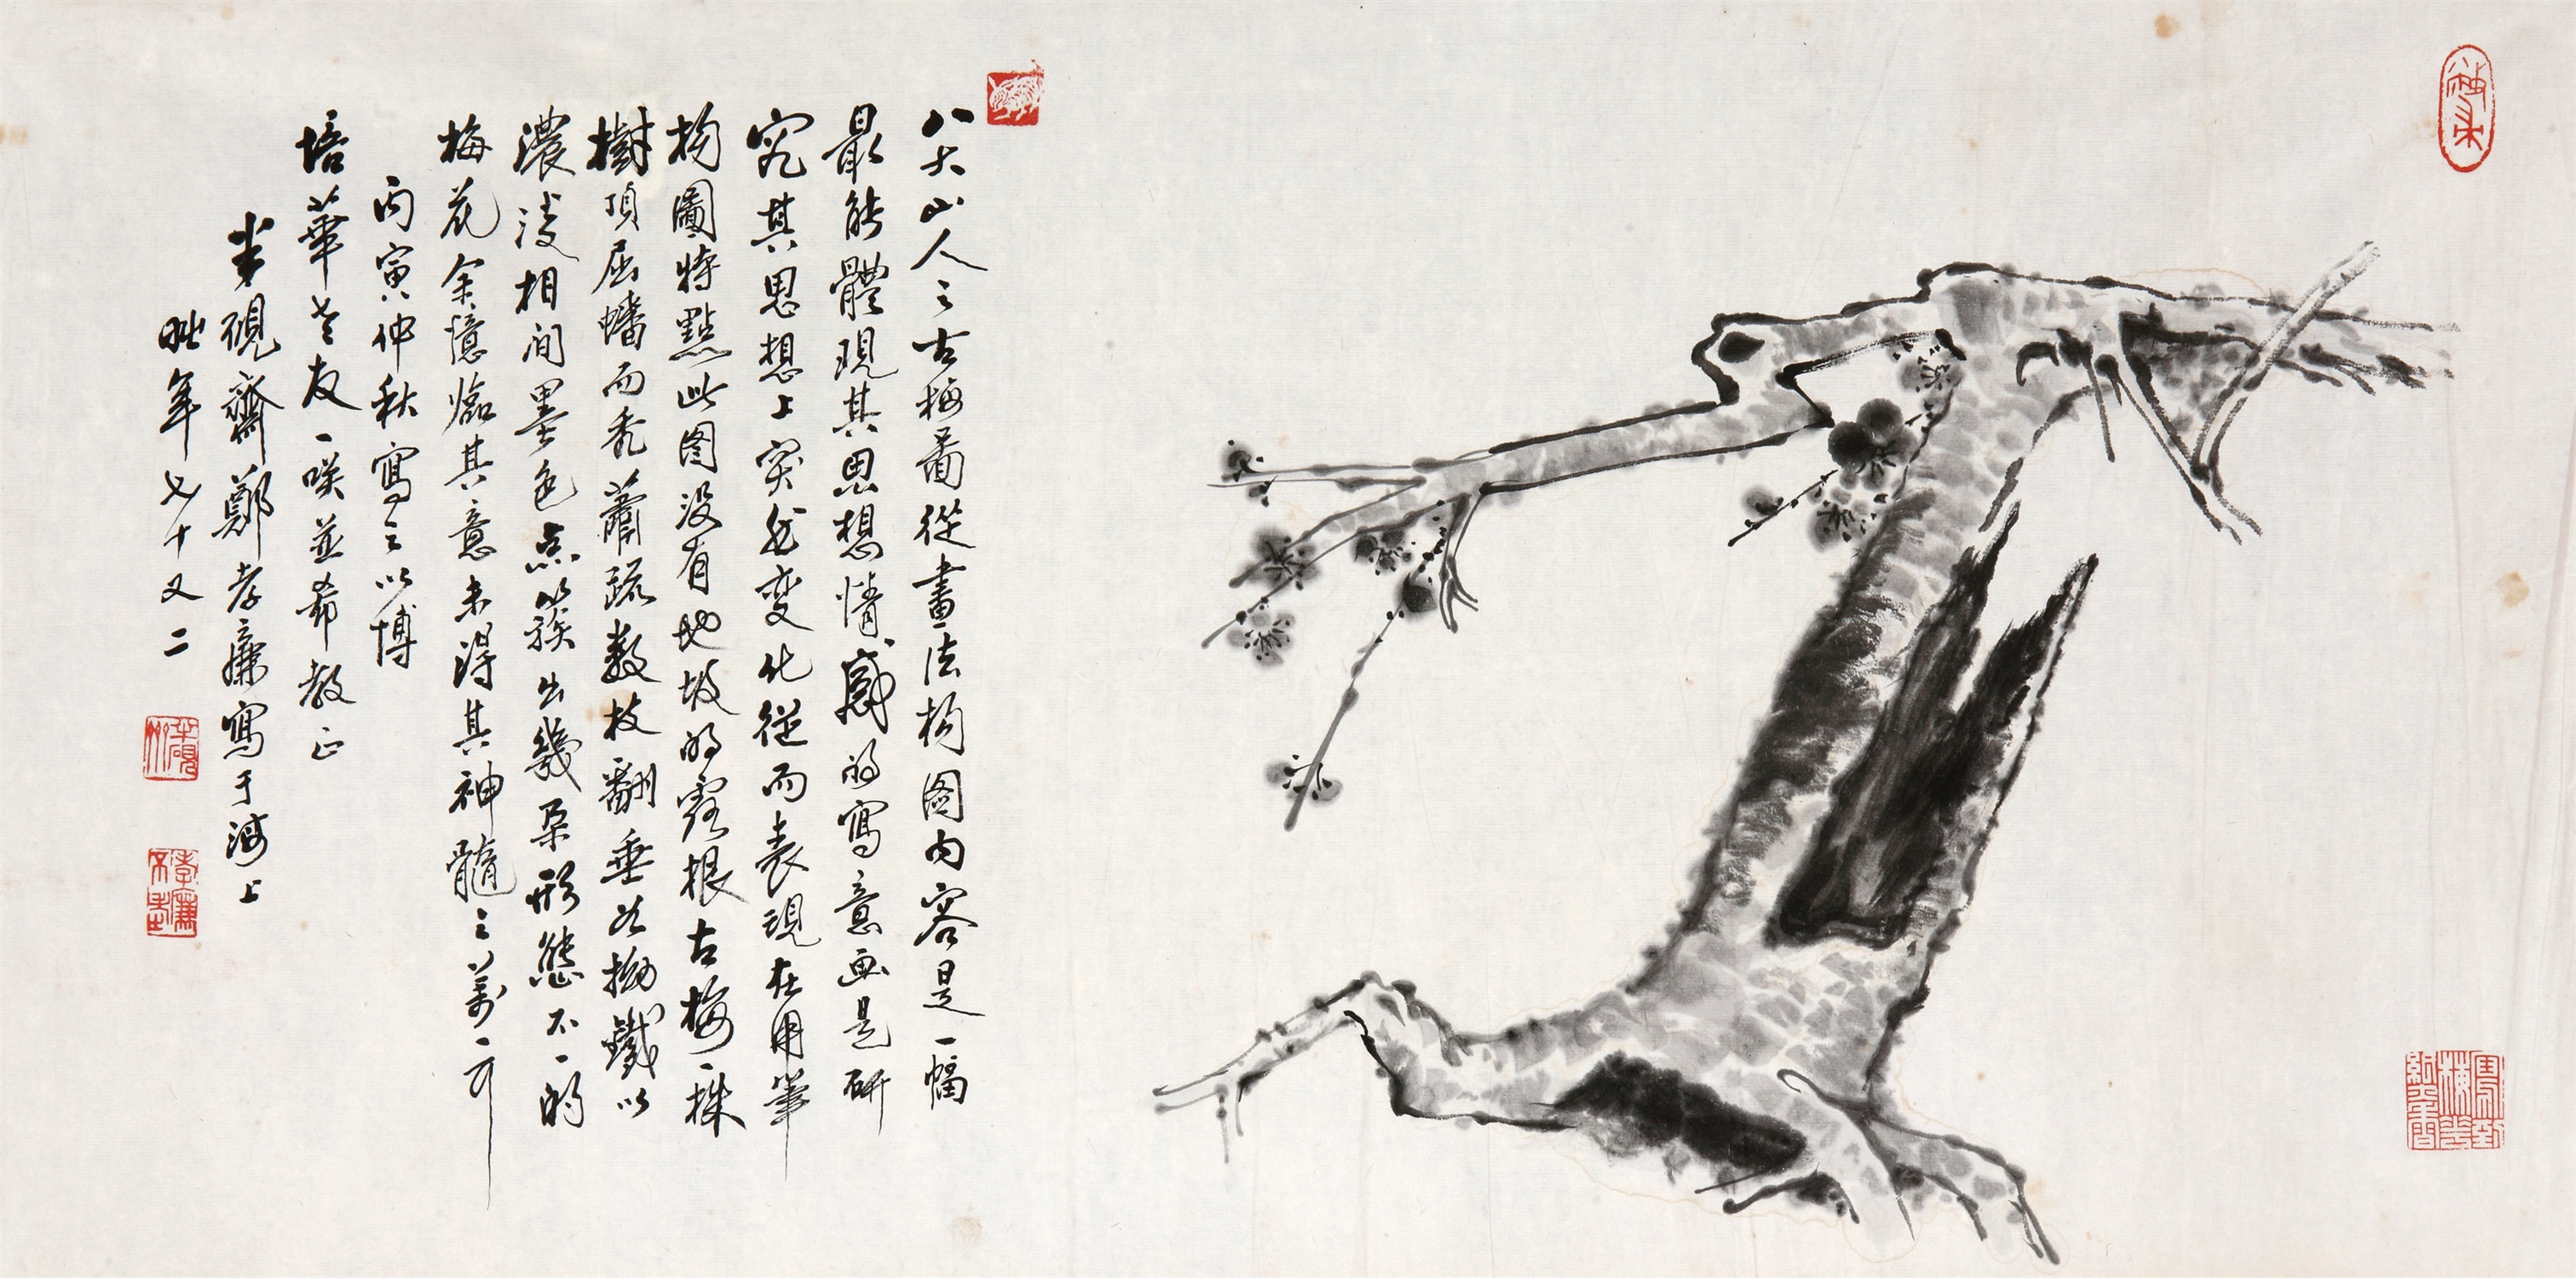 八大山人之古梅图從畫法构图内容是一幅
最能體現其思想情感的寫意画是研
究其思想上突然变化從而表現在用筆
构圖特點此图没有地坡的露根古梅一株
樹頂屈蟠而秃蕭疏数枝翻垂如拗鐵以
濃淡相间墨色点簇出幾朵形態不一的
梅花余憶臨其意未得其神髓之萬一可
丙寅仲秋寫之以博
培華老友一咲並希教正
半硯齋鄭孝廉寫于海上
時年七十又二